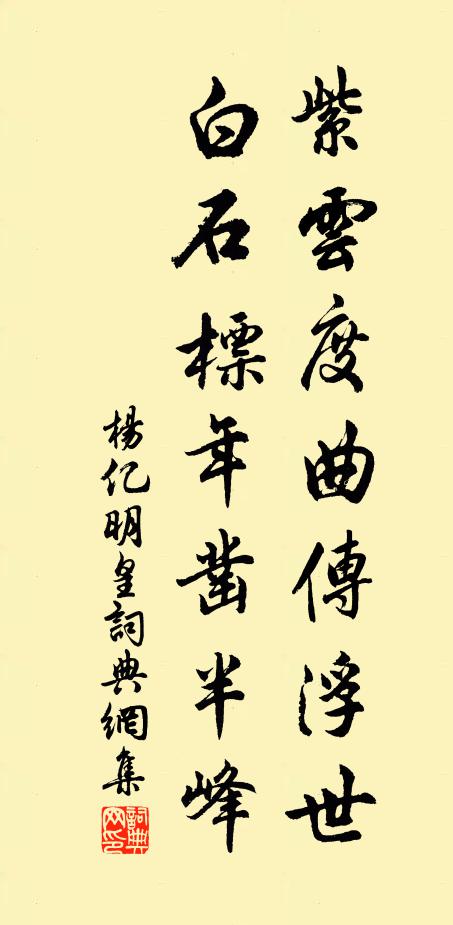 紫雲度曲傳浮世
白石標年凿半峰
楊亿明皇詞典網集
詞典網印